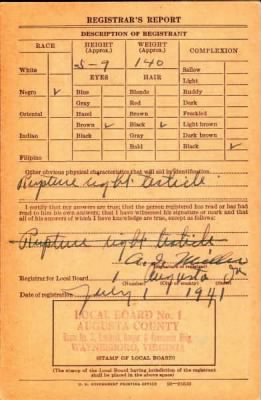 REGISTRAR'S REPORT
DESCRIPTION OF REGISTRANT
RACE
HEIGHT (Approx.)
WEIGHT (Approx.)
COMPLEXION
White
5-9
140
Sallow
EYES
HAIR
Light
Negro ✓
Blue
Blonde
Ruddy
Gray
Red
Dark
Oriental
Hazel
Brown
Freckled
Brown ✓
Black ✓
Light brown
Indian
Black
Gray
Dark brown
Bald
Black ✓
Filipino
Other obvious physical characteristics that will aid in identification
Rupture right testicle
I certify that my answers are true; that the person registered has read or has had
read to him his own answers; that I have witnessed his signature or mark and that
all of his answers of which I have knowledge are true, except as follows:
Rupture right testicle
Registrar for Local Board 1 Augusta Va
(Number) (City or county) (State)
Date of registration July 1 1941
LOCAL BOARD No. 1
AUGUSTA COUNTY
WAYNESBORO, VIRGINIA
(STAMP OF LOCAL BOARD)
(The stamp of the Local Board having jurisdiction of the registrant
shall be placed in the above space)
U. S. GOVERNMENT PRINTING OFFICE